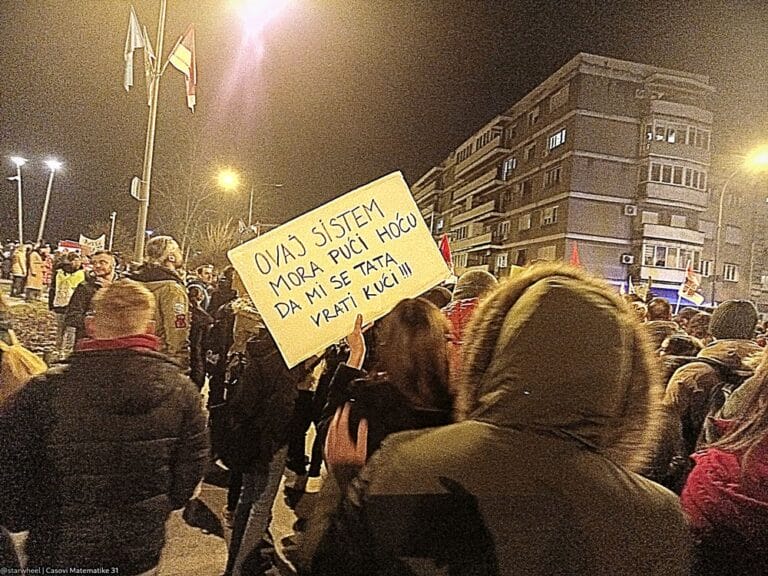 OVAJ SISTEM
MORA PUĆI HOĆU
DA MI SE TATA
VRATI KUĆI!!!
@starwheel | Casovi Matematike 31